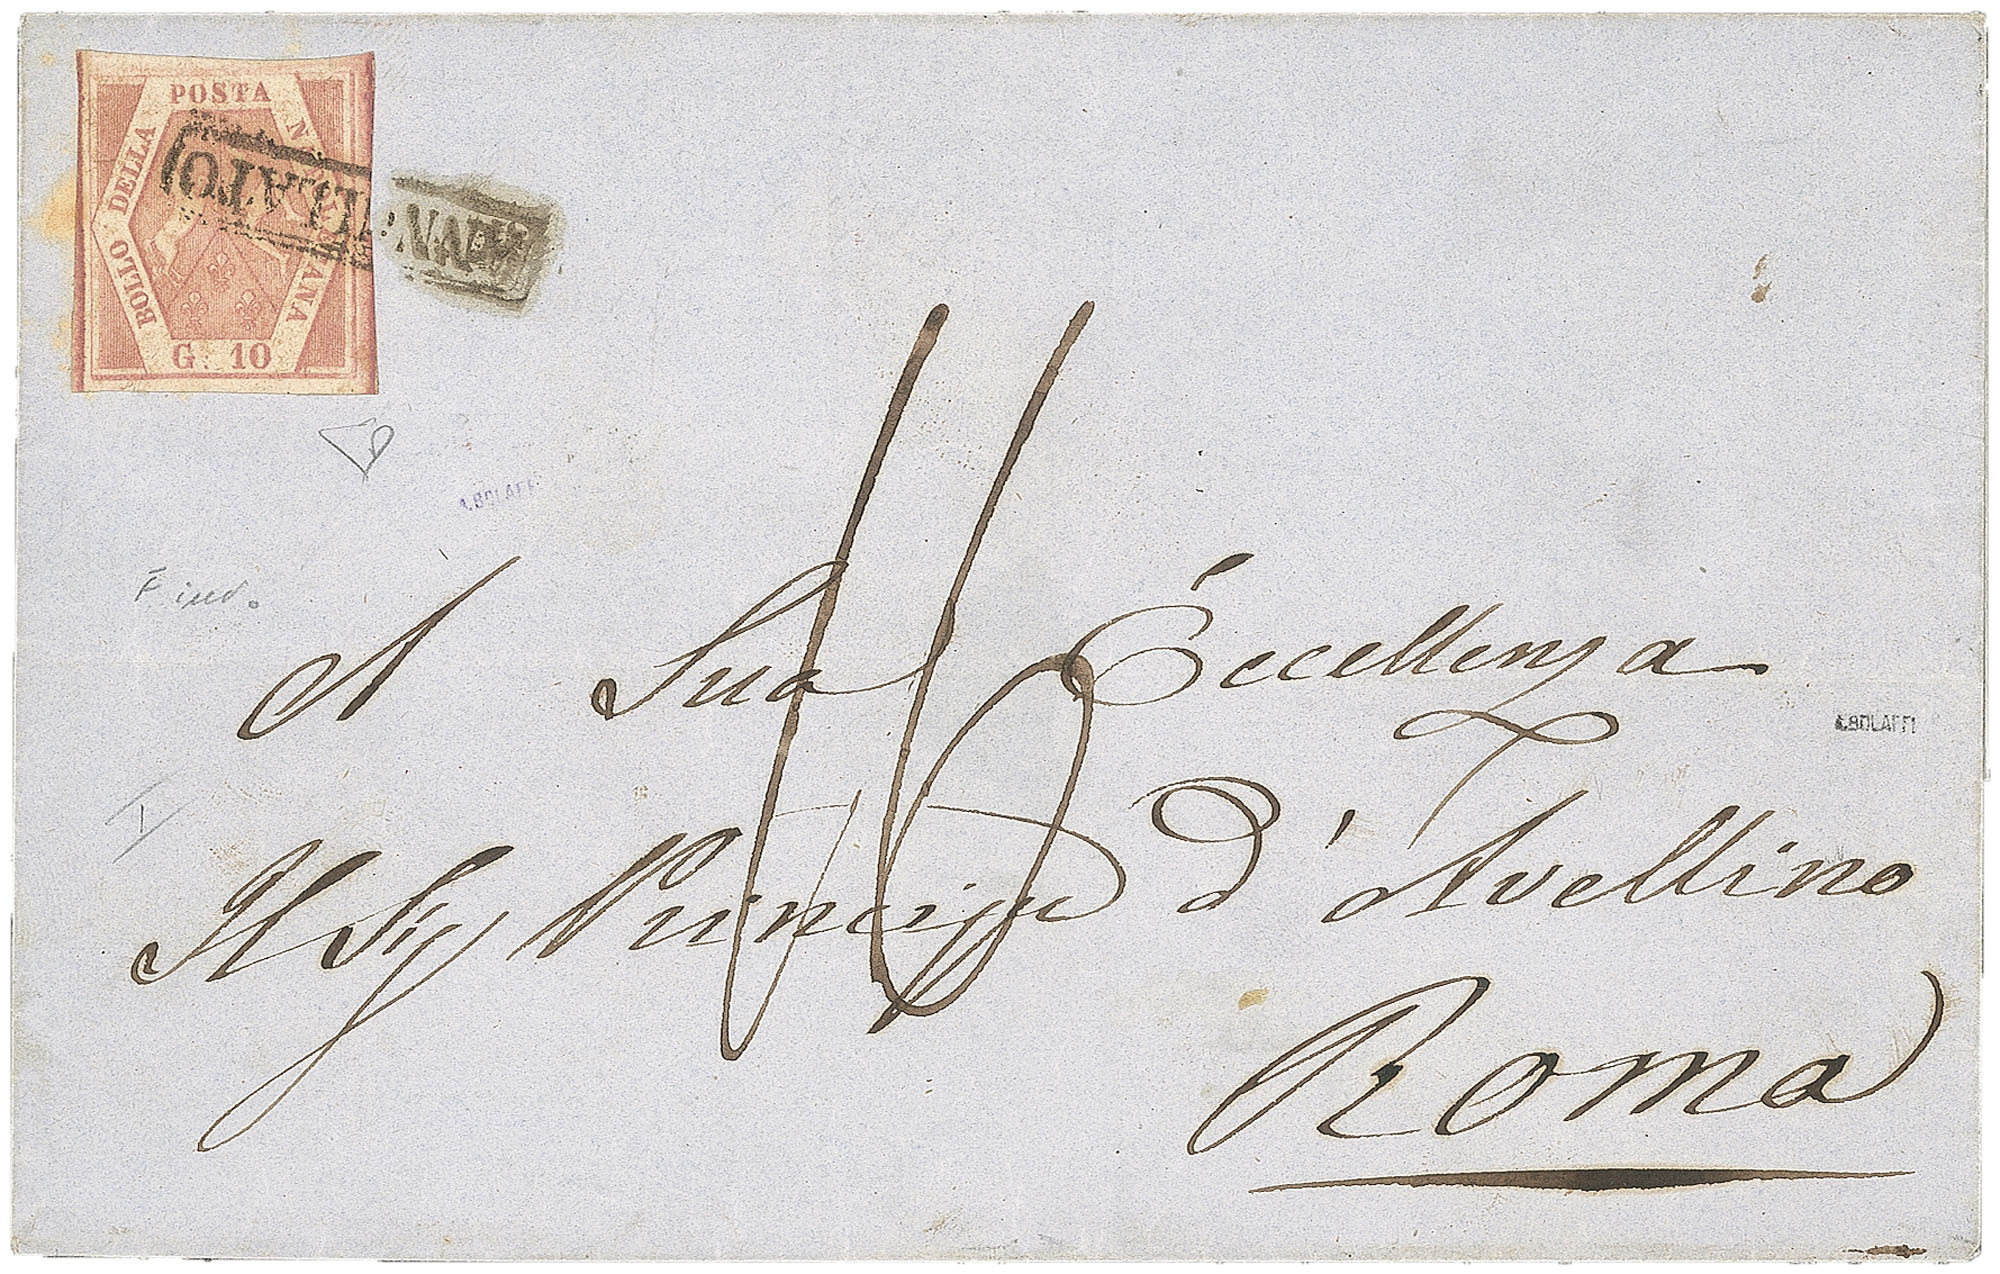 POSTA
BOLLO DELLA
G. 10
ANNULLATO
A. BOLAFFI
A Sua Eccellenza
A. BOLAFFI
Il Sig Principe d'Avellino
16
Roma